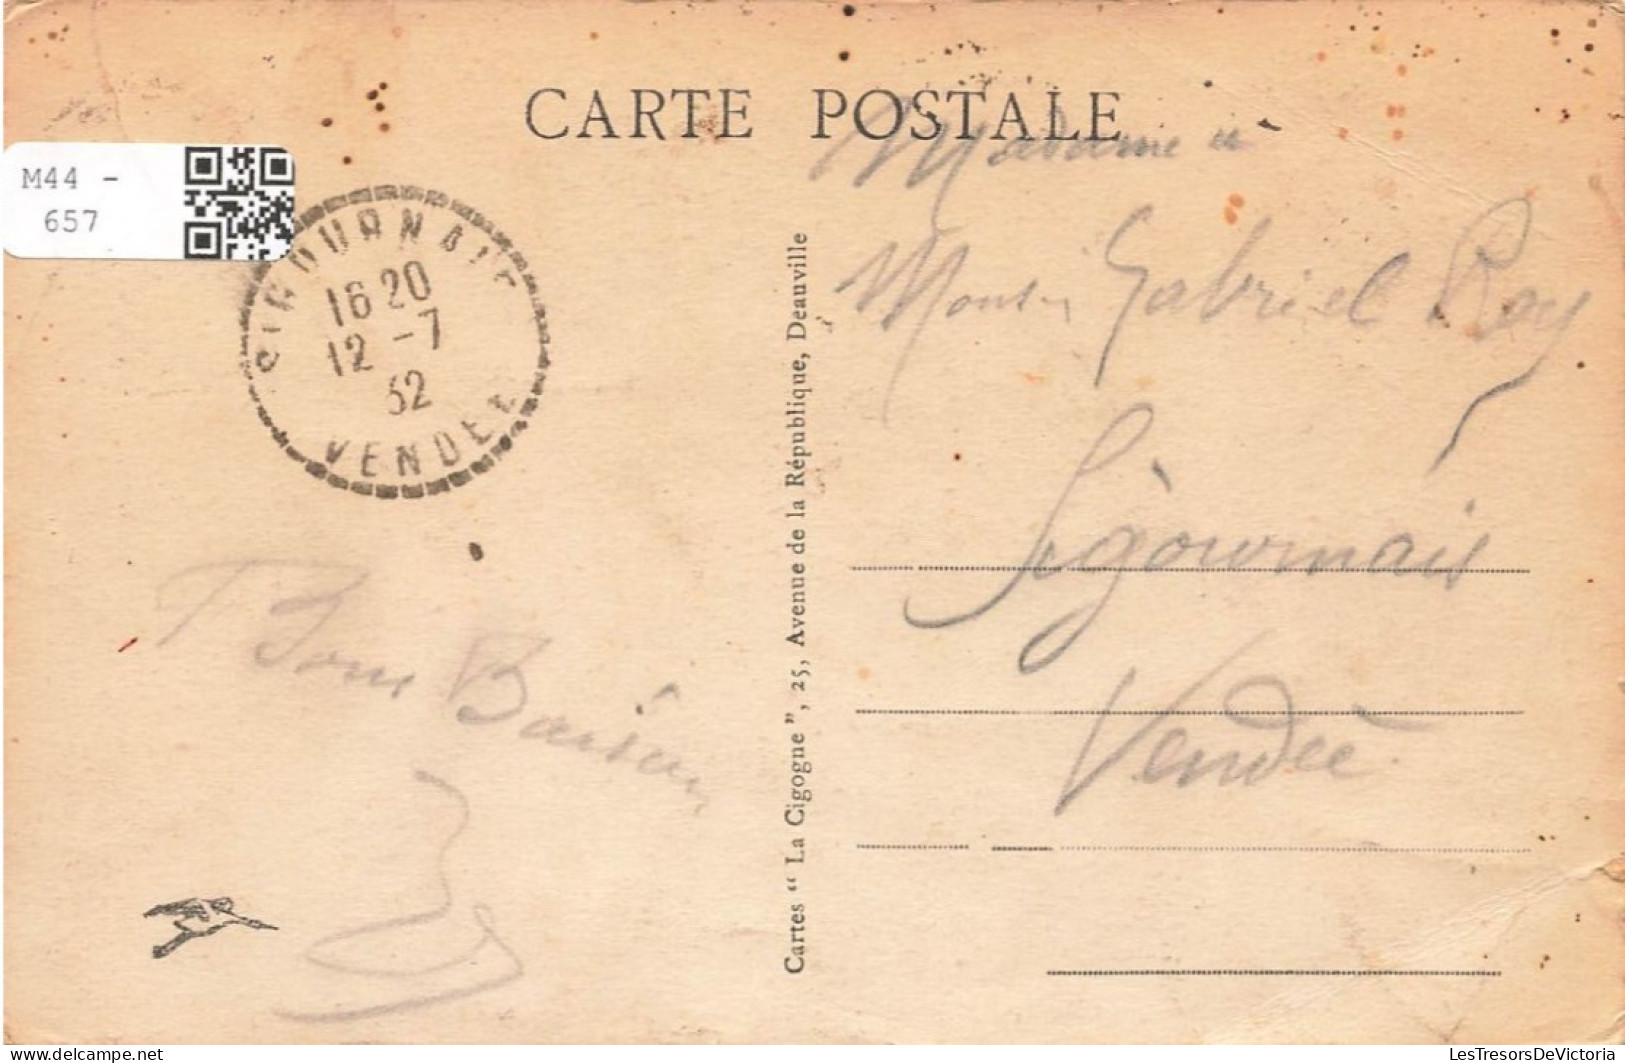 CARTE POSTALE
M44 -
657
SIGOURNAIS
16 20
12 -7
32
VENDEE
Madame et
Monsieur Gabriel Roy
Sigournais
Vendée
Bons Baisers
Cartes “ La Cigogne ”, 25, Avenue de la République, Deauville
delcampe.net
LesTresorsDeVictoria